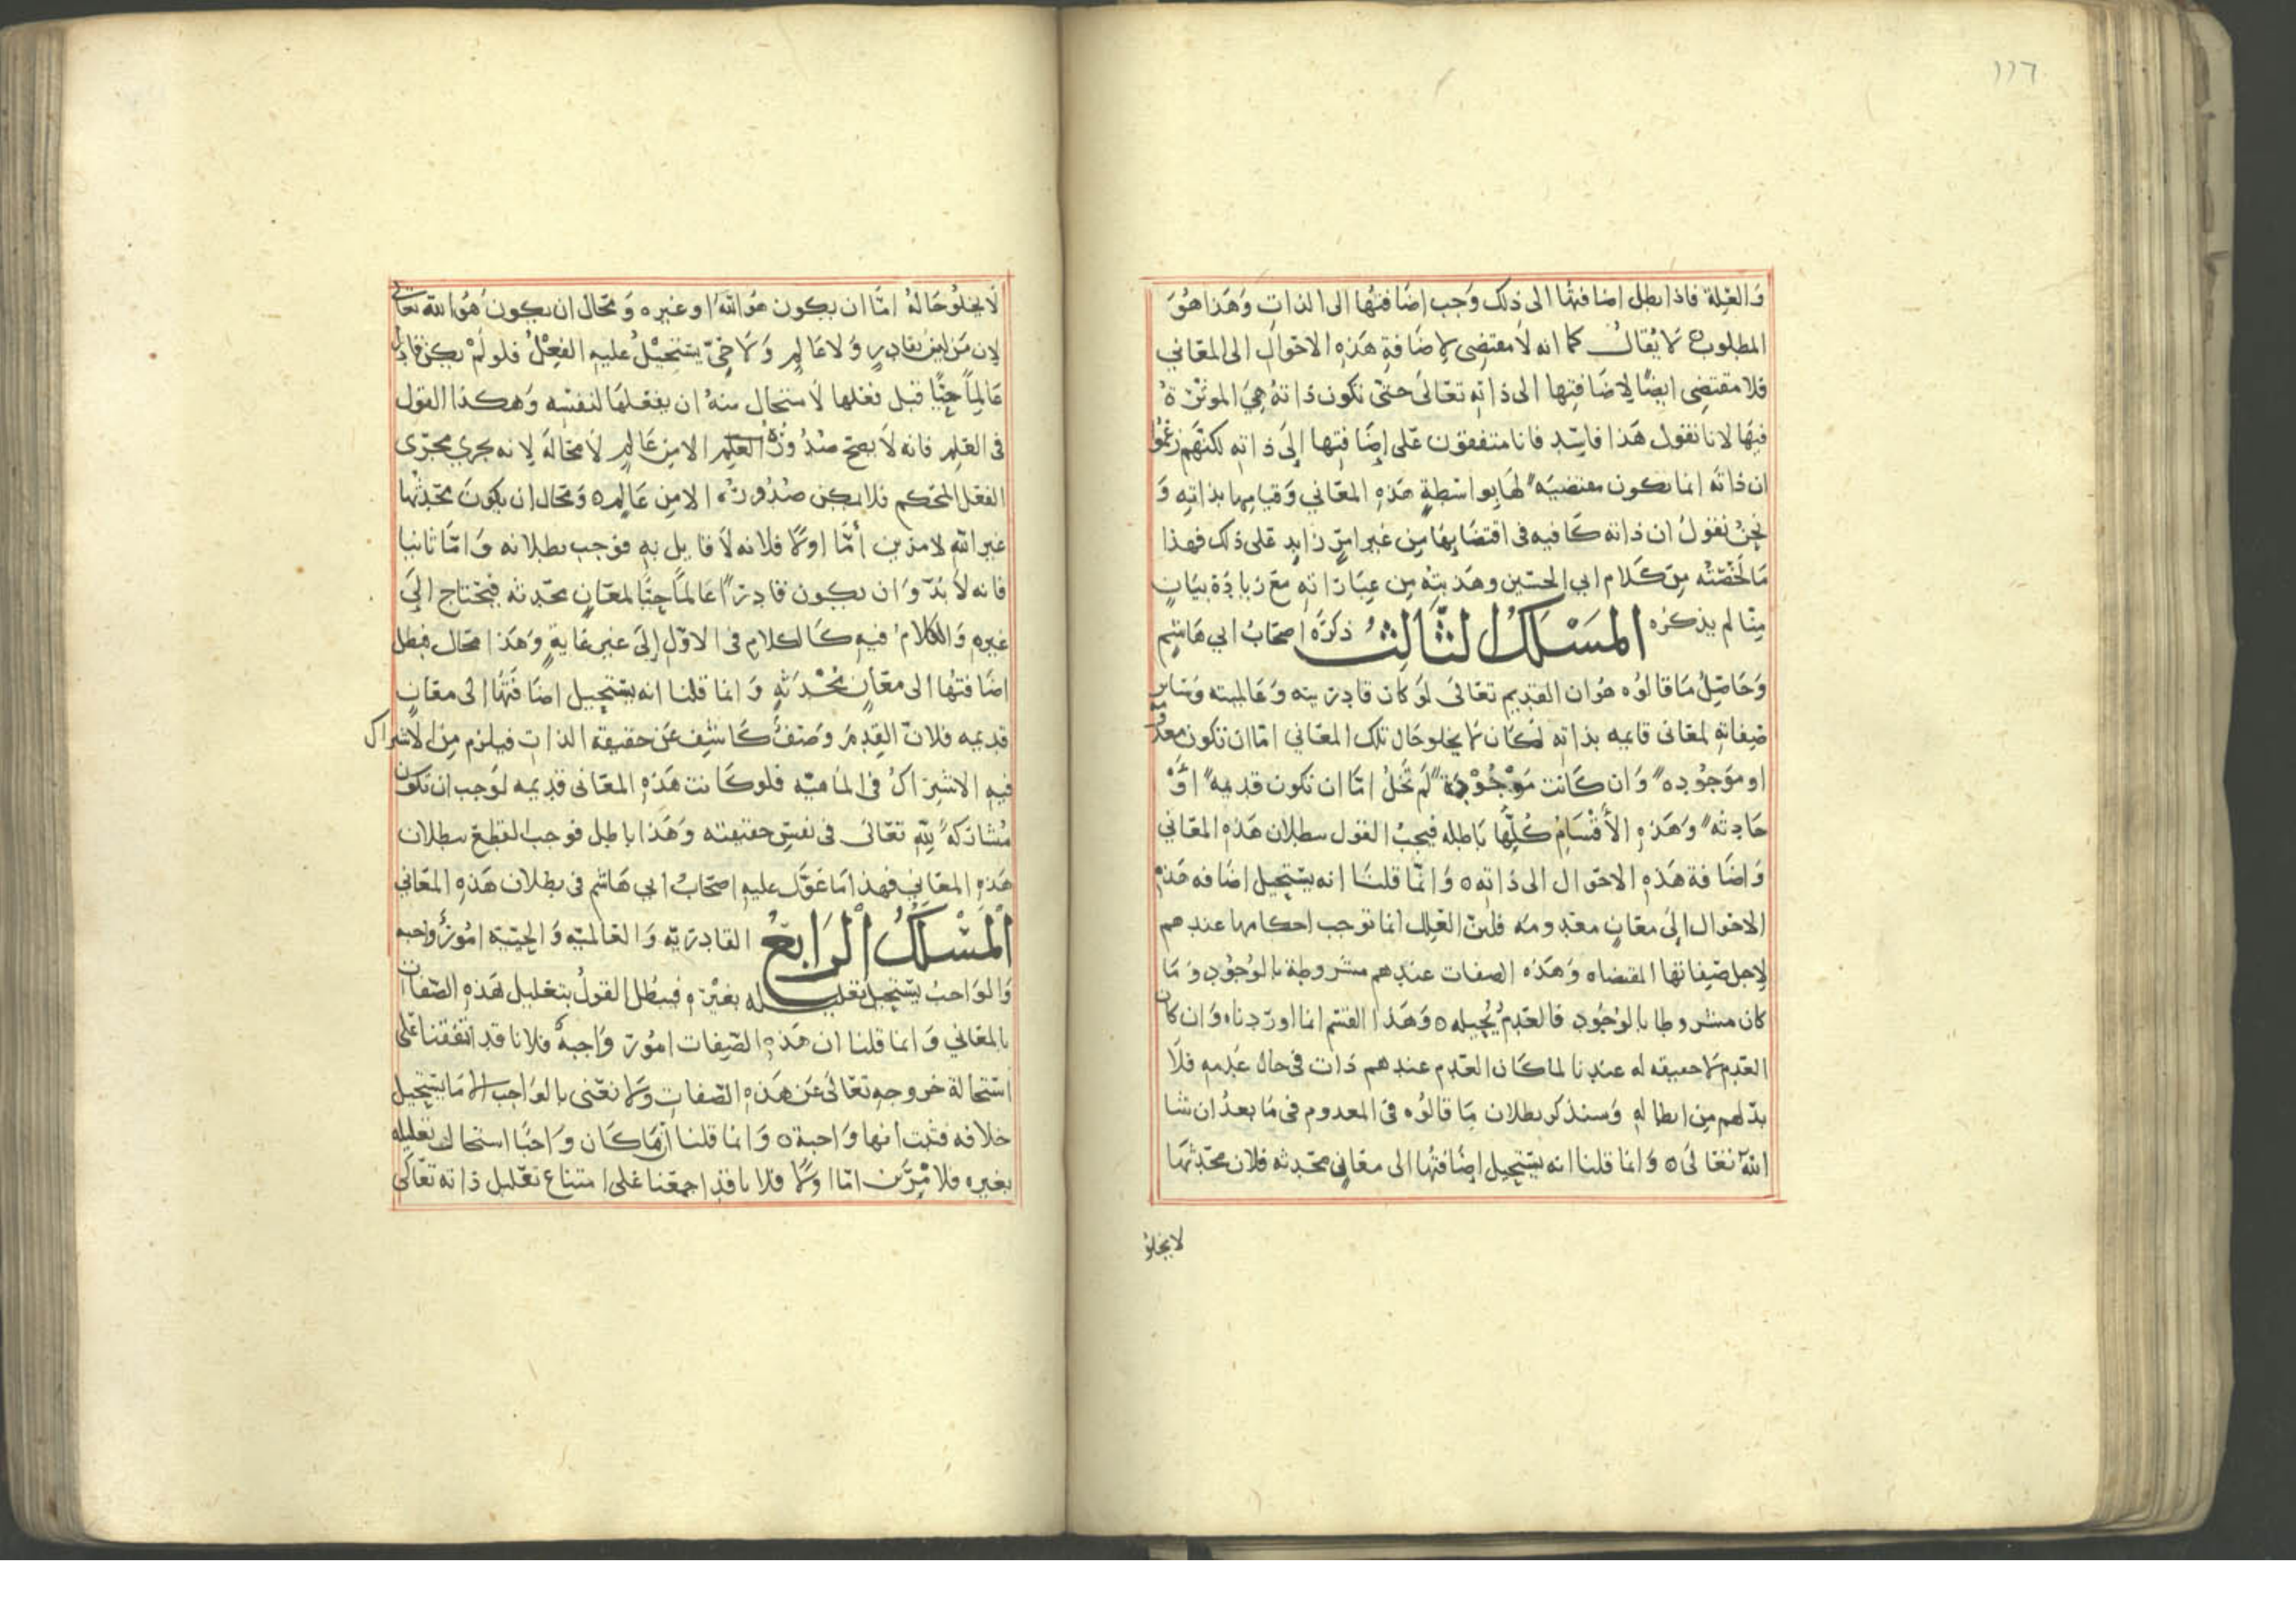 ١١٦
والعلة فاذا بطل اضافتها الى ذلك وجب اضافتها الى الذات وهذا هو
المطلوب ه لا يقال كما انه لا مقتضى لاضافة هذه الاحوال الى المعاني
فلا مقتضى ايضا لاضافتها الى ذاته تعالى حتى تكون ذاته هي الموثرة
فيها لانا نقول هذا فاسد فانا متفقون على اضافتها الى ذاته لكنهم زعموا
ان ذاته انما تكون مقتضيه لها بواسطة هذه المعاني وقيامها بذاته و
نحن نقول ان ذاته كافيه في اقتضايها من غير امر زايد على ذلك فهذا
ما لخصته من كلام ابي الحسين وهذبته من عباراته مع زيادة بيان
مما لم يذكره المسلك الثالث ذكره اصحاب ابي هاشم
وحاصل ما قالوه هو ان القديم تعالى لو كان قادريته وعالميته وساير
صفاته لمعانى قايمه بذاته لكان لا يخلو حال تلك المعاني اما ان تكون معدومة
او موجوده وان كانت موجودة لم تخل اما ان تكون قديمه او
حادثه وهذه الأقسام كلها باطله فيجب القول ببطلان هذه المعاني
واضافة هذه الاحوال الى ذاته ه وانما قلنا انه يستحيل اضافه هذه
الاحوال إلى معان معدومه فلان العلل انما توجب احكامها عندهم
لاجل صفاتها المقتضاه وهذه الصفات عندهم مشروطة بالوجود وما
كان مشروطا بالوجود فالعدم يحيله ه وهذا القسم انما اوردناه وان كان
العدم لا حقيقه له عندنا لما كان العدم عندهم ذات في حال عدمه فلا
بد لهم من ابطاله وسنذكر بطلان ما قالوه في المعدوم في ما بعد ان شا
الله تعالى ه وانما قلنا انه يستحيل اضافتها الى معاني محدثه فلان محدثها
لا يخلو
لا يخلو حاله اما ان يكون هو الله او غيره ومحال ان يكون هو الله تعالى
لان من ليس بقادر ولا عالم ولا حي يستحيل عليه الفعل فلو لم يكن قادرا
عالما حيا قبل فعلها لاستحال منه ان يفعلها لنفسه وهكذا القول
في العلم فانه لا يصح صدور العلم الا من عالم لا محالة لانه يجري مجرى
الفعل المحكم فلا يمكن صدوره الا من عالم ه ومحال ان يكون محدثها
غير الله لامرين أما اولا فلانه لا قايل به فوجب بطلانه واما ثانيا
فانه لا بد وان يكون قادرا عالما حيا لمعان محدثه فيحتاج إلى
غيره والكلام فيه كالكلام في الاول إلى غير غاية وهذا محال فبطل
اضافتها الى معان محدثه وانما قلنا انه يستحيل اضافتها الى معان
قديمه فلان القدم وصف كاشف عن حقيقه الذات فيلزم من الاشتراك
فيه الاشتراك في الماهيه فلو كانت هذه المعانى قديمه لوجب ان تكون
مشاركة لله تعالى في نفس حقيقته وهذا باطل فوجب القطع ببطلان
هذه المعاني فهذا ما عول عليه اصحاب ابي هاشم في بطلان هذه المعاني
المسلك الرابع القادريه والعالميه والحيية امور واجبه
والواجب يستحيل تعليله بغيره فبطل القول بتعليل هذه الصفات
بالمعاني وانما قلنا ان هذه الصفات امور واجبه فلانا قد اتفقنا على
استحالة خروجه تعالى عن هذه الصفات ولا نعني بالواجب الا ما يستحيل
خلافه فثبت انها واجبة ه وانما قلنا ان ما كان واجبا استحال تعليله
بغيره فلامرين اما اولا فلانا قد اجمعنا على امتناع تعليل ذاته تعالى